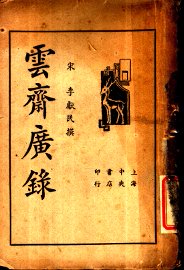 宋 李獻民撰
雲齋廣錄
上海
中央
書店
印行